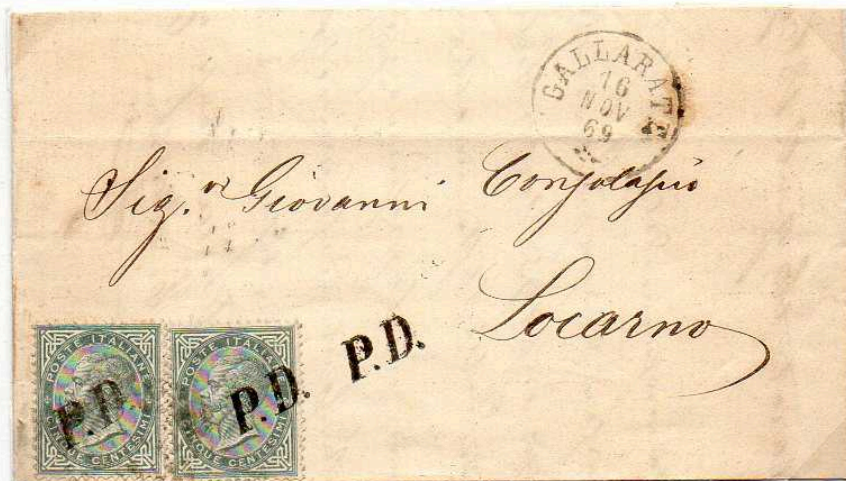 GALLARATE
16
NOV
69
Sig.r Giovanni
Locarno
P.D.
POSTE ITALIANE
CINQUE CENTESIMI
P.D.
POSTE ITALIANE
CINQUE CENTESIMI
P.D.